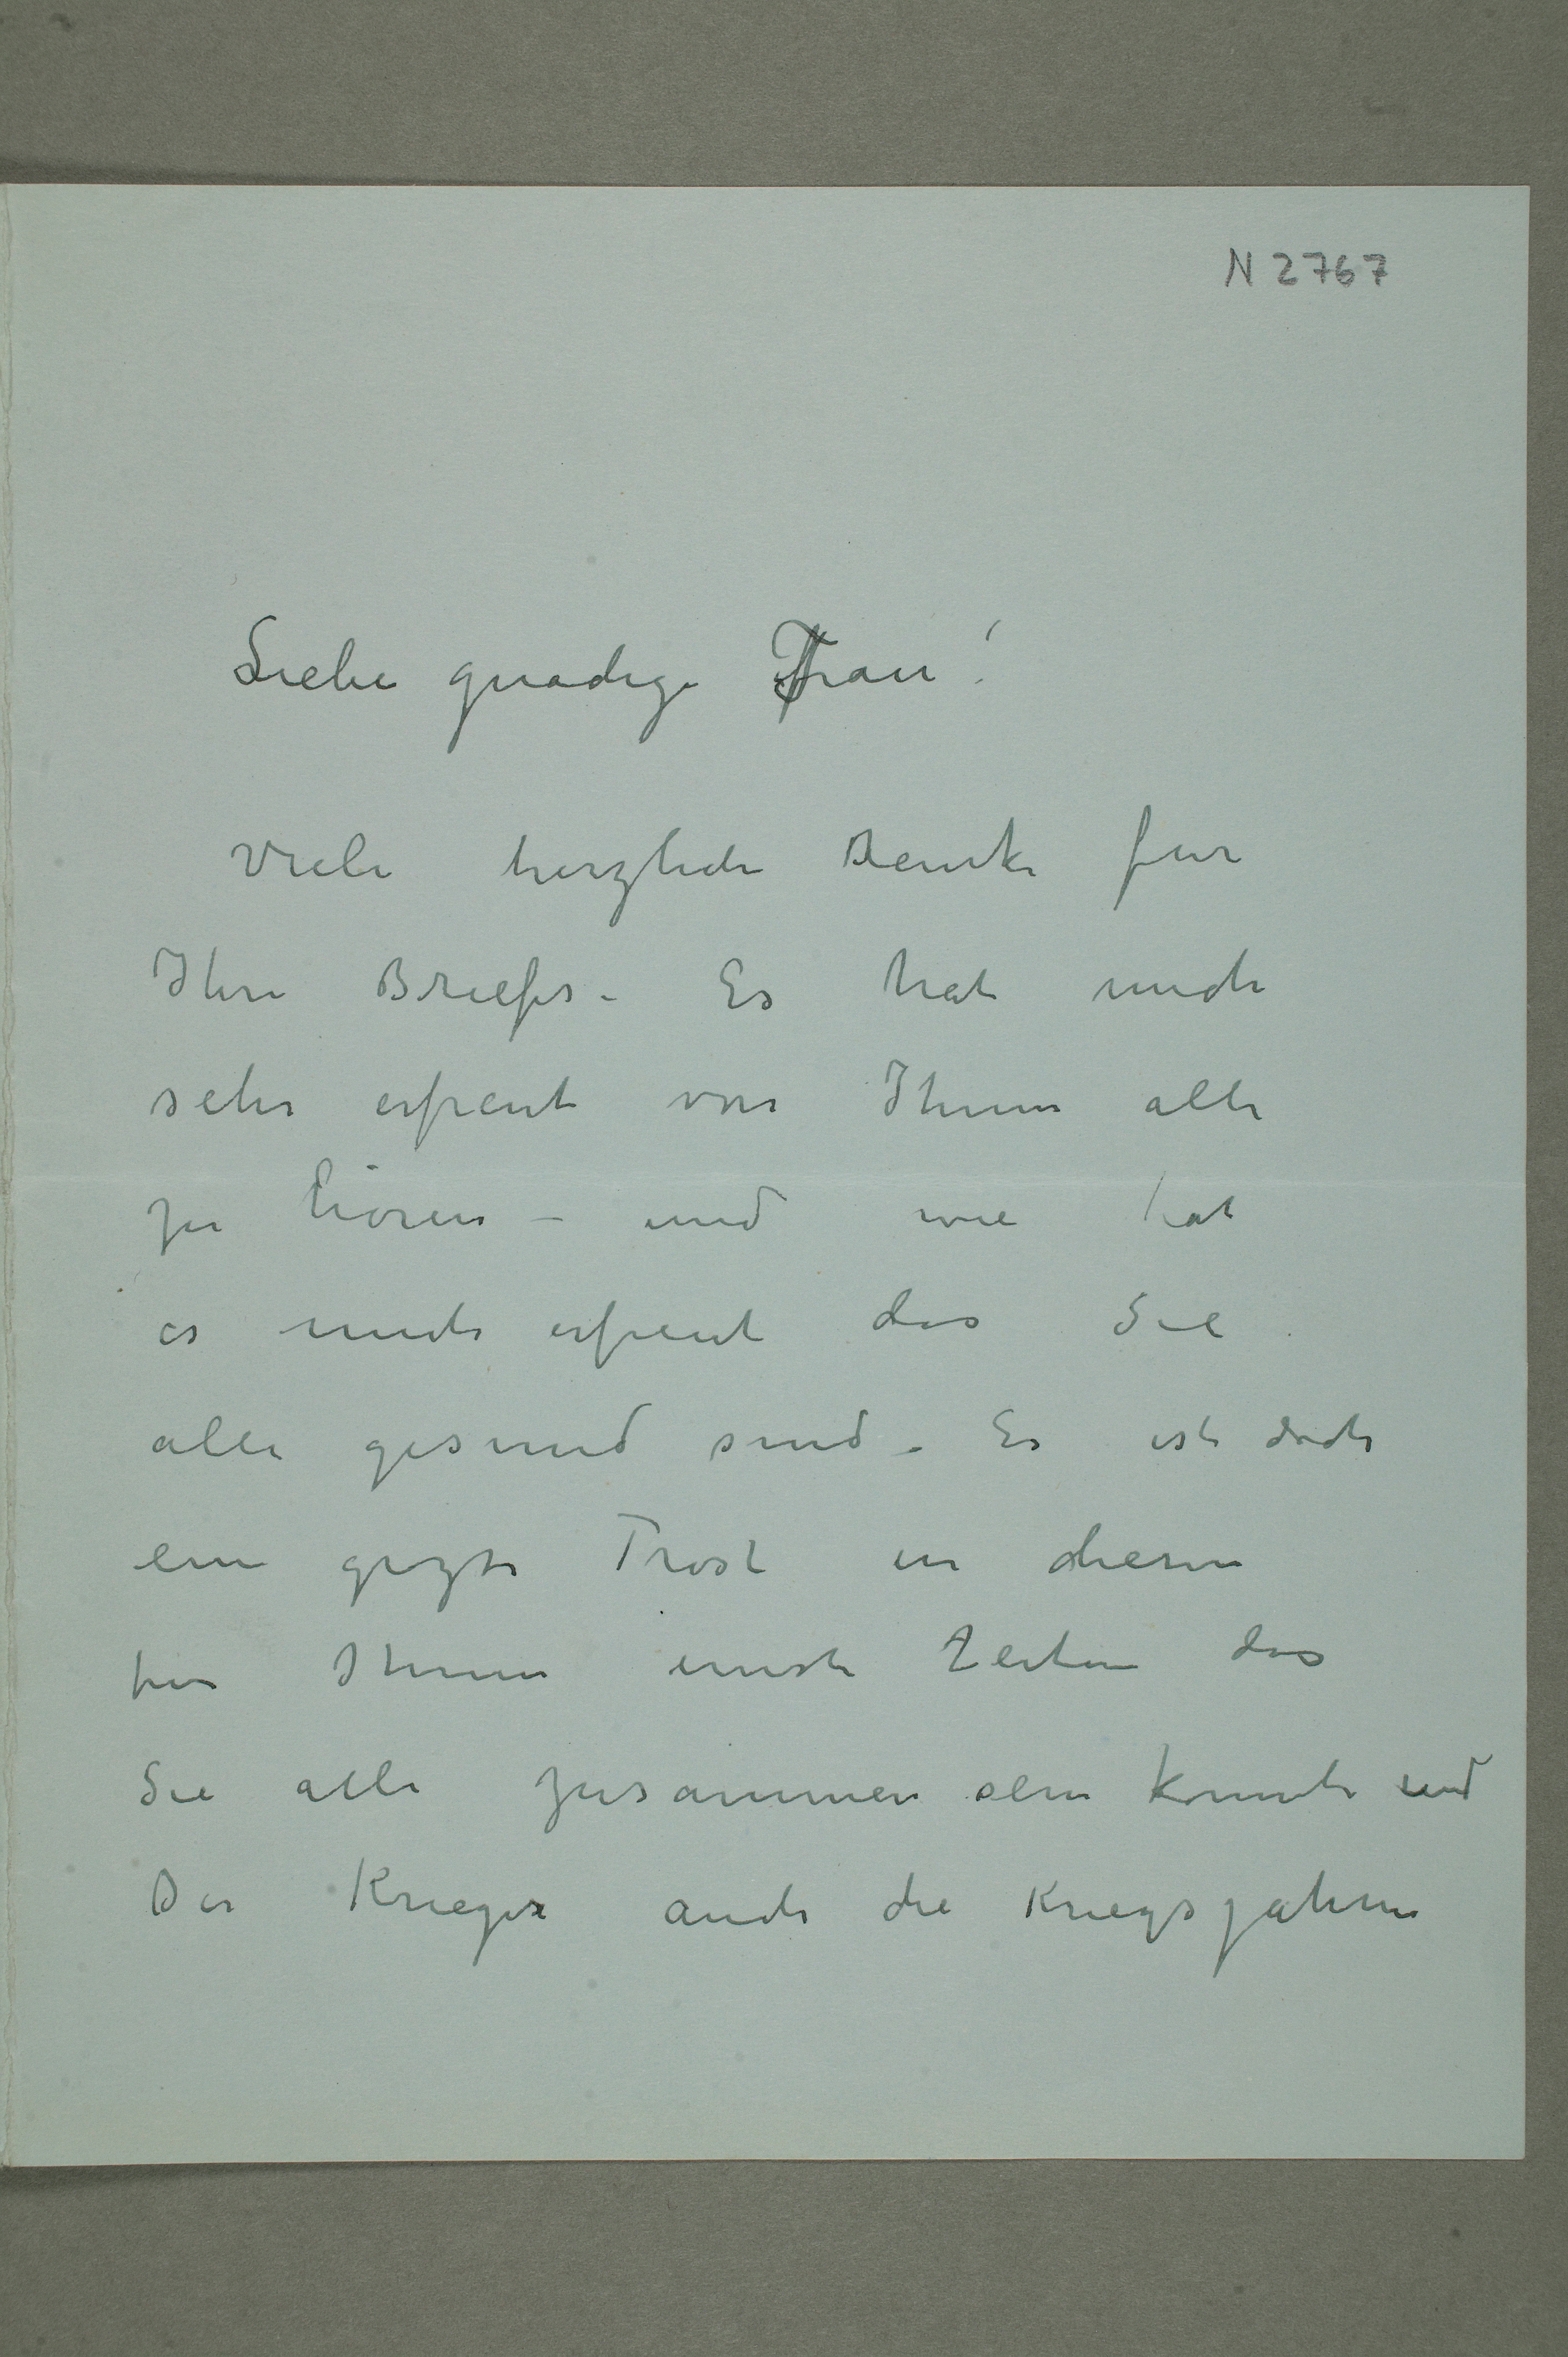 N 2767
Liebe gnadige Frau!
Viele herzliche Danke fur
Ihre Briefes. Es hat mich
sehr erfreut von Ihnen alle
zu hören – und wie hat
es mich erfreut das Sie
alle gesund sind. Es ist doch
ein Trost in diesen
fur Ihnen ernste Zeiten das
Sie alle zusammen sein konnte und
Der Krieges auch die Kriegsjahren